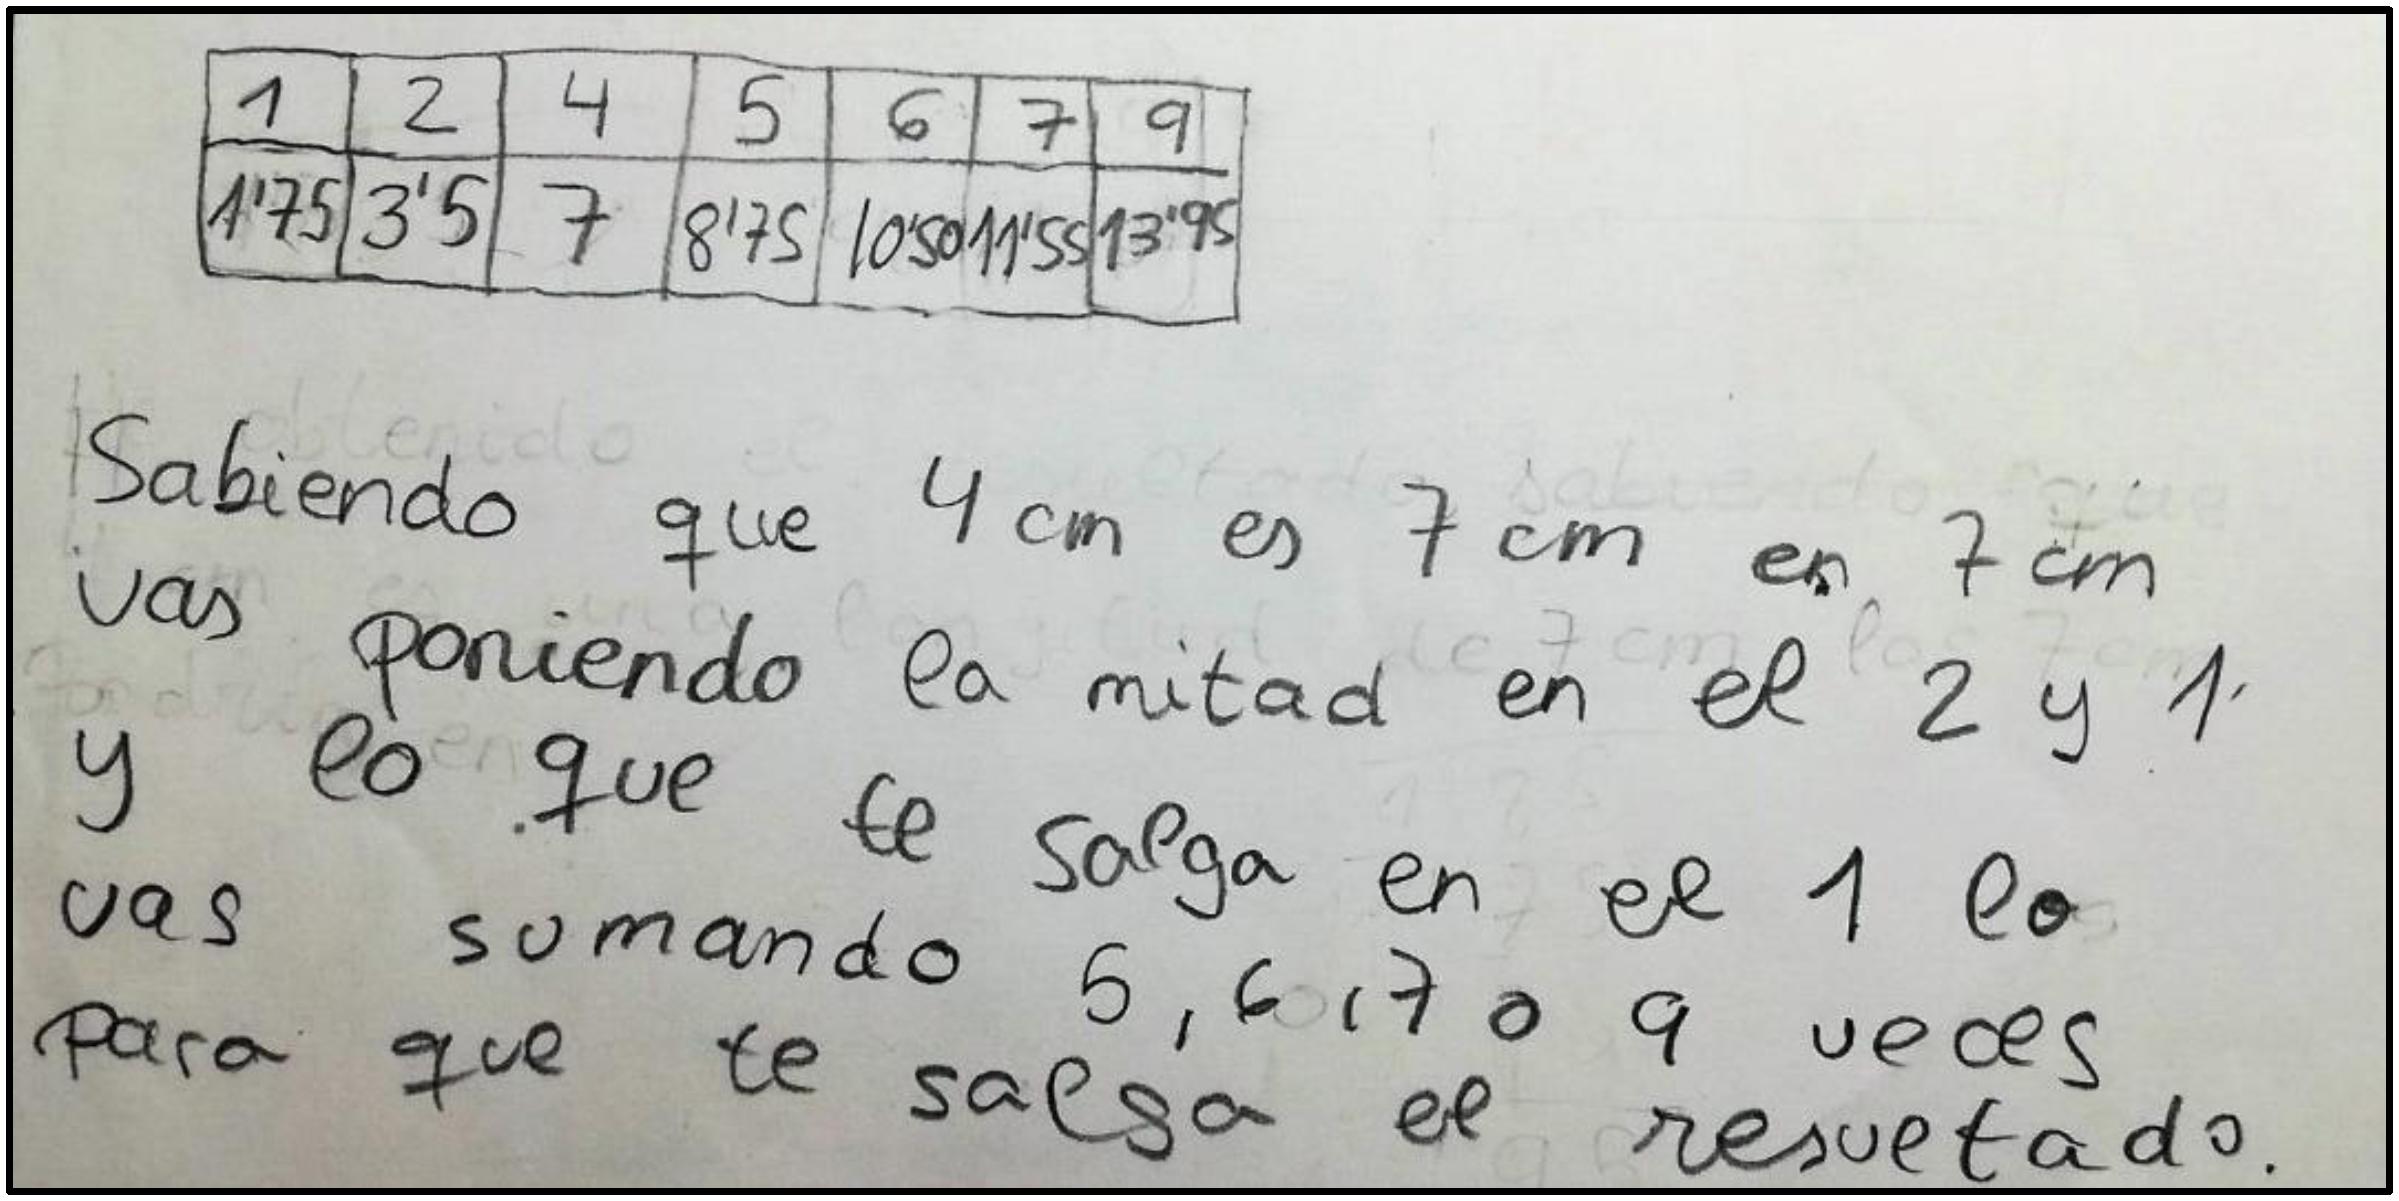 1 2 4 5 6 7 9
1'75 3'5 7 8'75 10'50 11'55 13'95
Sabiendo que 4 cm es 7 cm en 7 cm
vas poniendo la mitad en el 2 y 1
y lo que te salga en el 1 lo
vas sumando 5, 6, 7 o 9 veces
para que te salga el resultado.